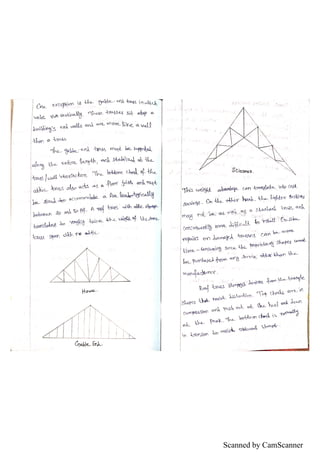 One exception is the gable end truss in which
webs run vertically. These trusses sit atop a
building's end walls and are more like a wall
than a truss.
The gable end truss must be supported
along the entire length, and stabilized at the
truss/wall intersection. The bottom chord of the
attic truss also acts as a floor joist and must
be sized to accommodate a live load typically
between 30 and 50 PSF. A roof truss with attic storage
translates to roughly twice the weight of the same
truss span with no attic.
Howe
Gable End
Scissors
This weight advantage can translate into cost
savings. On the other hand, the lighter scissors
may not be as as a standard truss, and
consequently more difficult to install. Possible
repairs on damaged trusses can be more
time-consuming since the pieces cannot
be purchased from any source other than the
manufacturer.
Roof trusses derive from the triangle
shapes that resist distortion. Top chords are in
compression and push out at the heel and down
at the peak. The bottom chord is normally
in tension to resist outward thrust.
Scanned by CamScanner